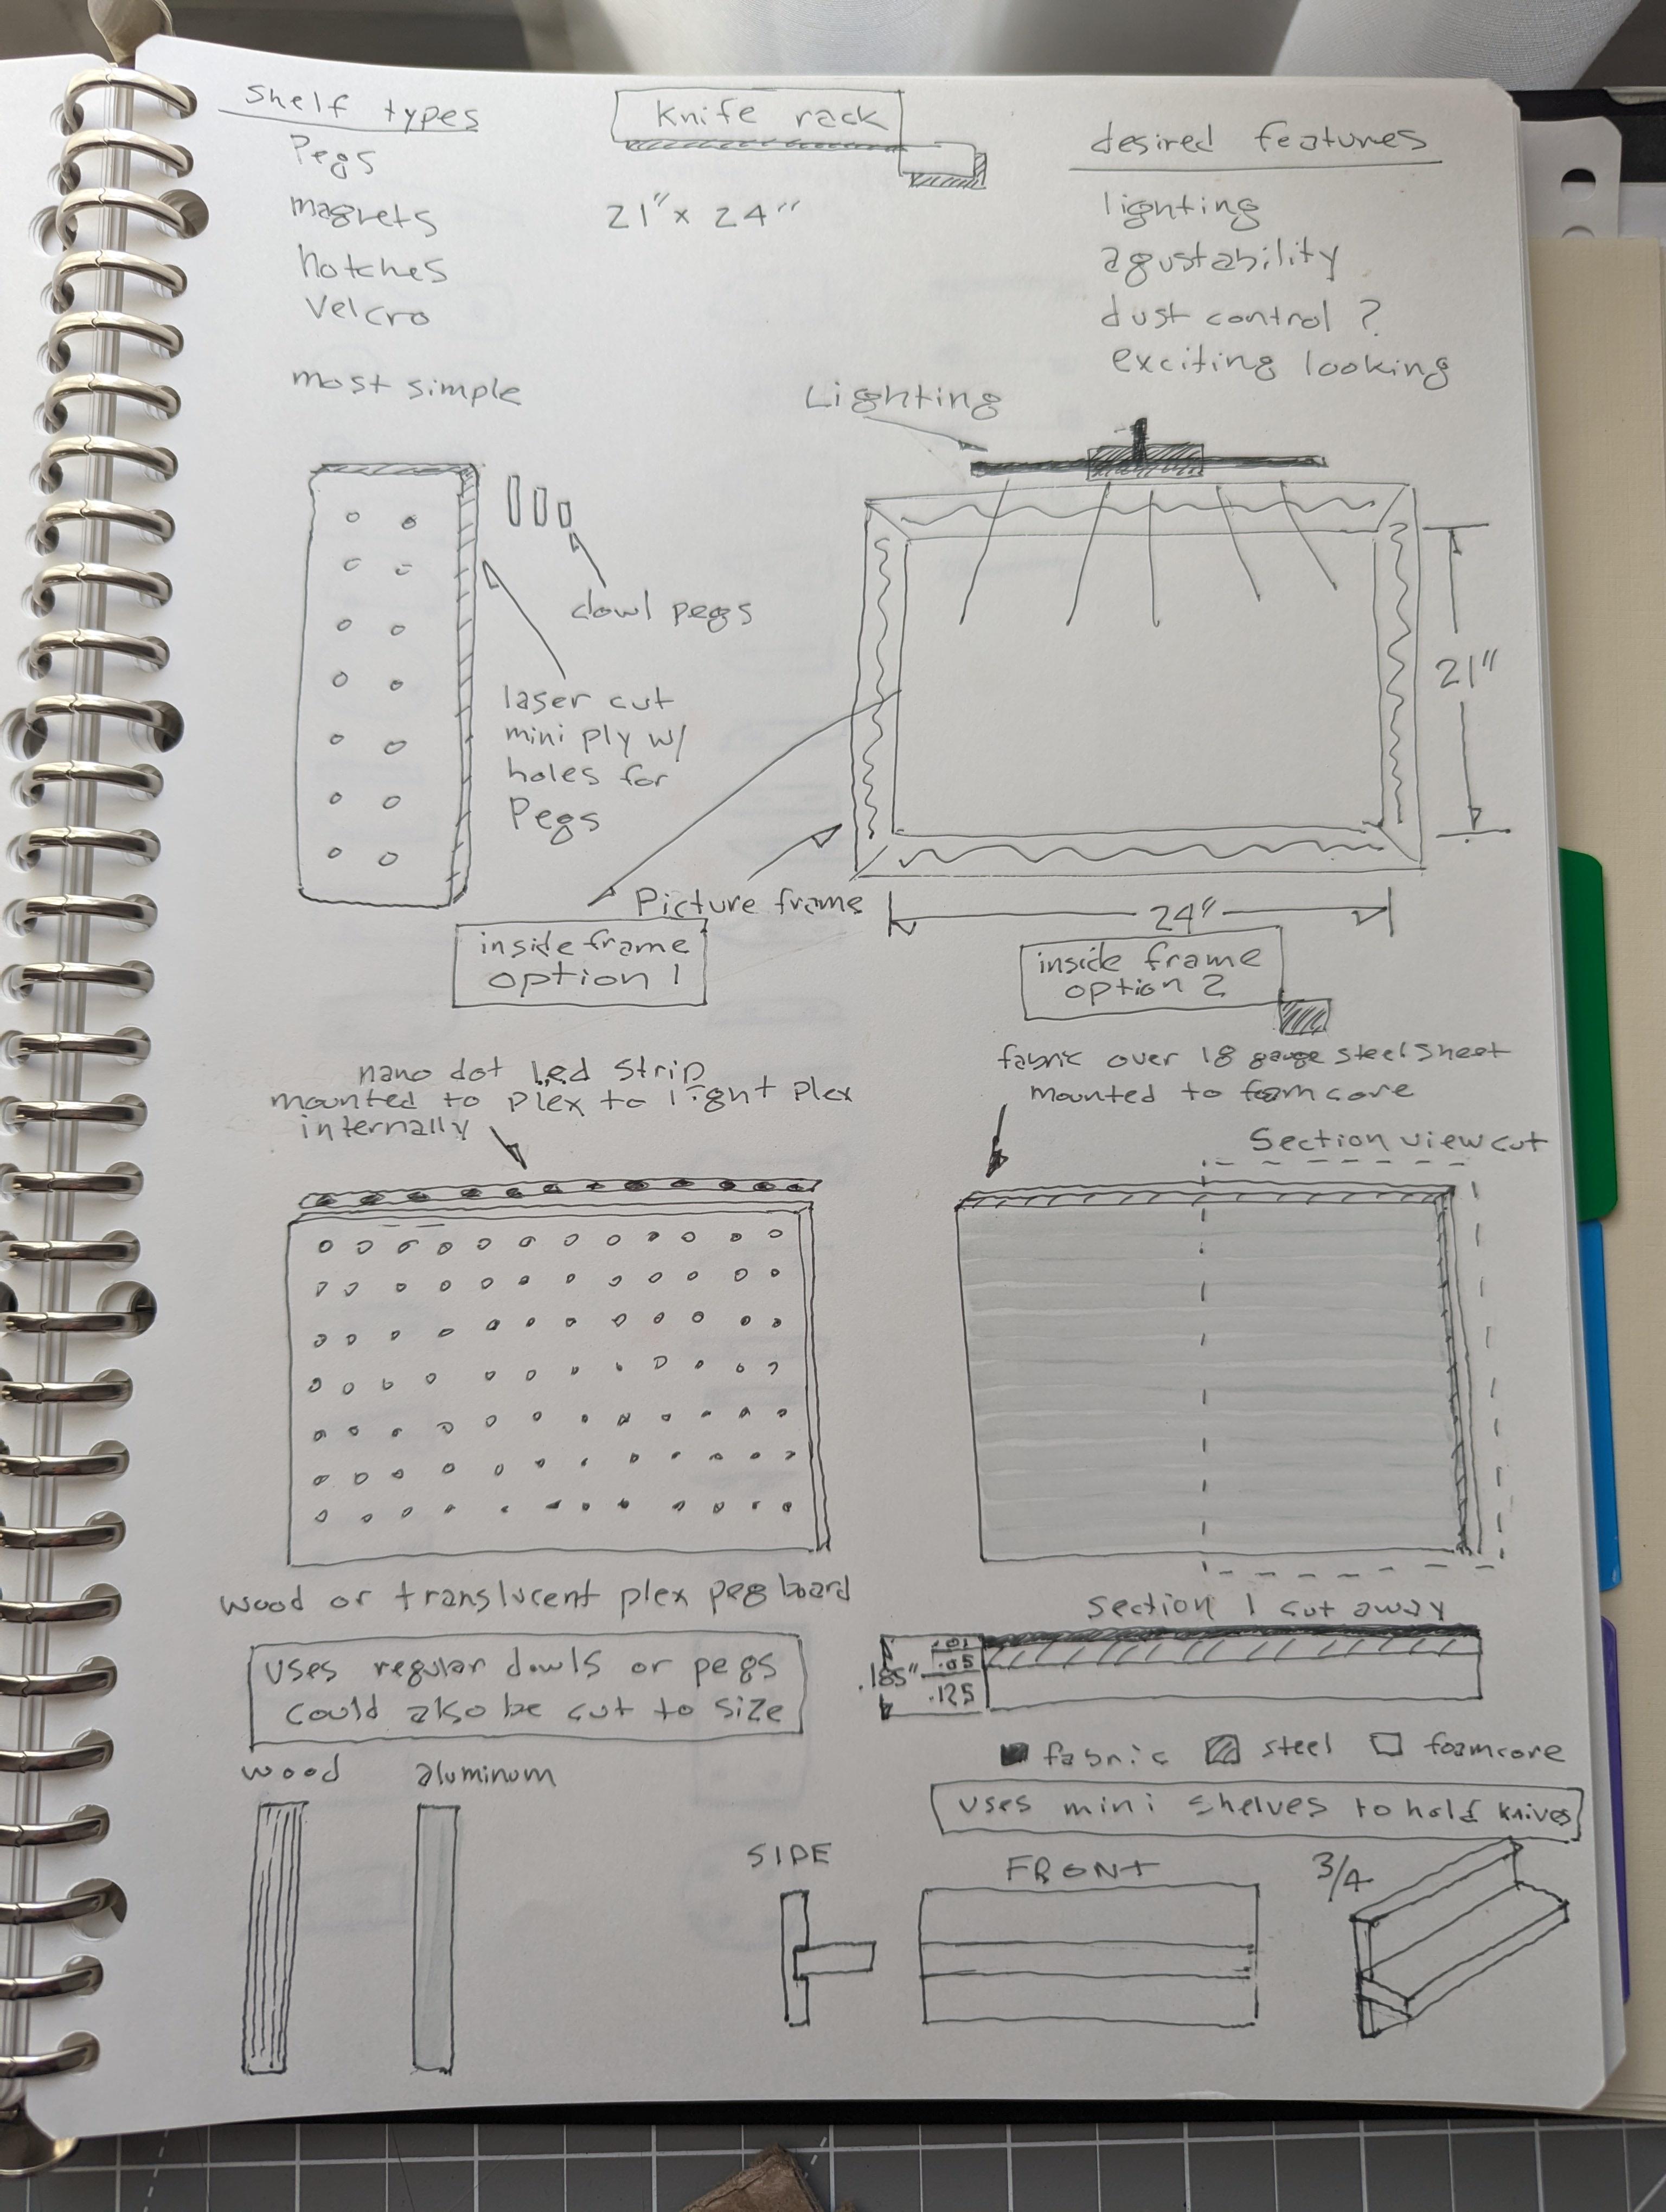 shelf types
Pegs
magnets
notches
Velcro
Knife rack
21" x 24"
desired features
lighting
agustability
dust control ?
exciting looking
most simple
dowl pegs
laser cut
mini ply w/
holes for
Pegs
Lighting
21"
24"
Picture frame
inside frame
option 1
inside frame
option 2
nano dot led strip
mounted to plex to light plex
internally
wood or translucent plex peg board
uses regular dowls or pegs
could also be cut to size
wood
aluminum
fabric over 18 gauge steel sheet
mounted to foam core
Section view cut
Section 1 cut away
.185"
.01
.05
.125
fabric steel foamcore
uses mini shelves to hold knives
SIDE
FRONT
3/4